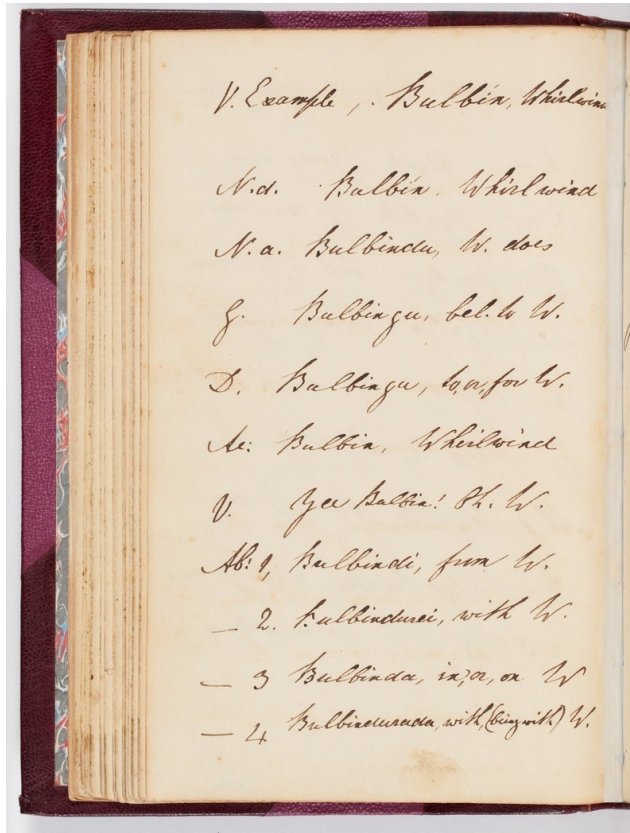 V. Example, . Bulbin, Whirlwind
N.d. Bulbin. Whirlwind
N.a. Bulbindu, W. does
G. Bulbingu, bel. to W.
D. Bulbingu, to, or, for W.
Ac: Bulbin, Whirlwind
V. Yea Bulbin! Oh. W.
Ab: 1, Bulbindi, from W.
— 2. Bulbindurei, with W.
— 3 Bulbinda, in, or, on W
— 4 Bulbindurada, with, (being with) W.